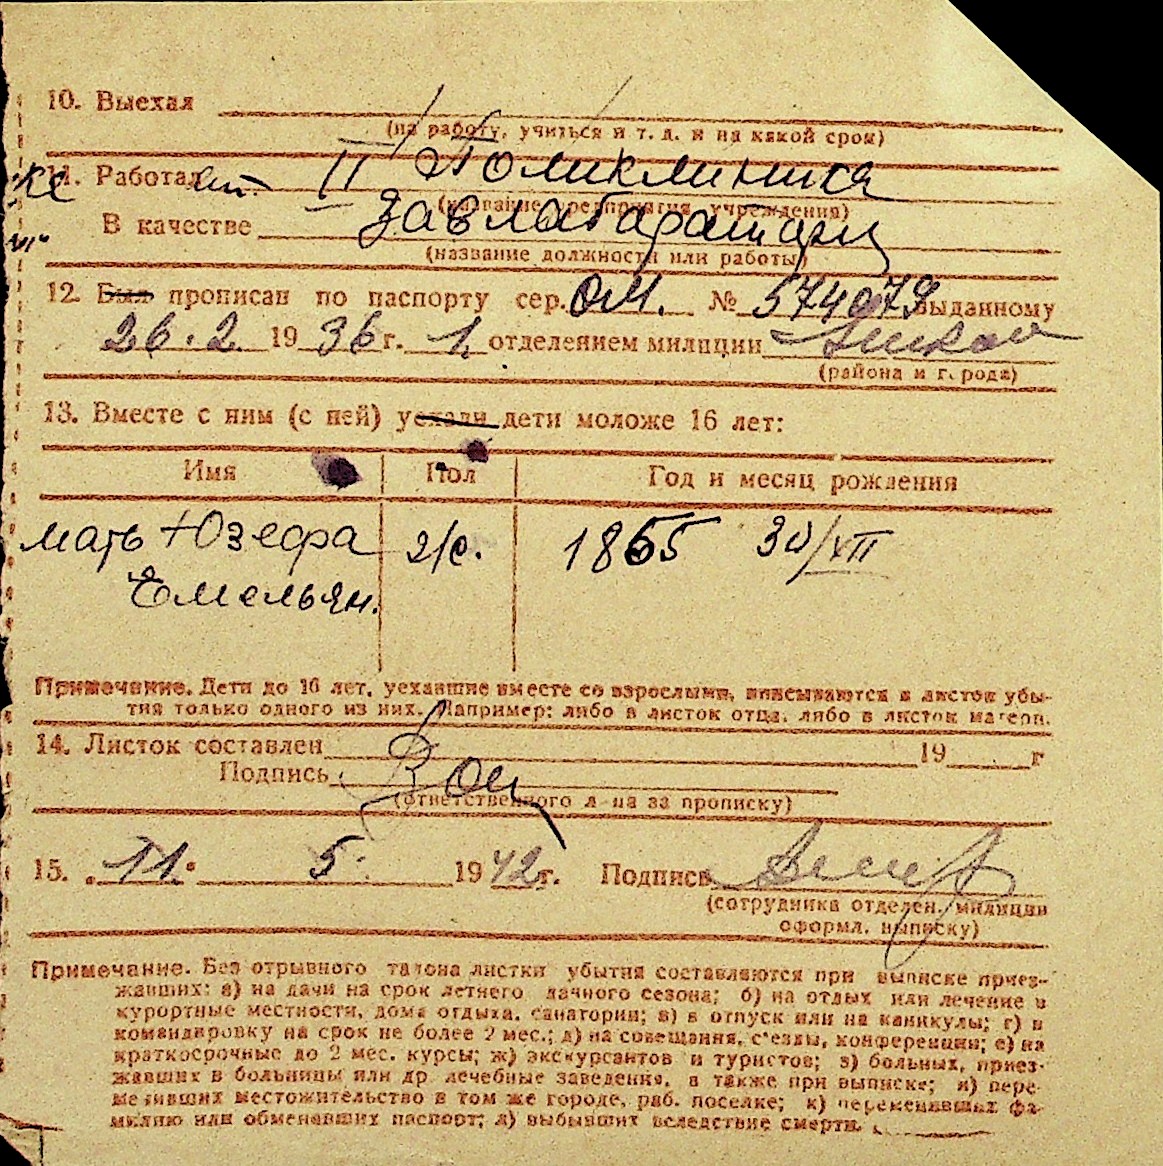 10. Выехал
(на работу, учиться и т. д. и на какой срок)
11. Работает II Поликлиника
(название предприятия, учреждения)
В качестве Завлабараторц
(название должности или работы)
12. Был прописан по паспорту сер. ОМ. № 574079 выданному
26.2 1936 г. 1. отделением милиции
(района и города)
13. Вместе с ним (с ней) уехали дети моложе 16 лет:
Имя Пол Год и месяц рождения
мать Юзефа 1865 30/XII
Емельян.
Примечание. Дети до 16 лет, уехавшие вместе со взрослыми, вписываются в листок убы-
тия только одного из них. Например: либо в листок отца, либо в листок матери.
14. Листок составлен 19 г
Подпись
(ответственного л-ца за прописку)
15. 11. 5. 1942 г. Подпись
(сотрудника отделен. милиции
оформл. выписку)
Примечание. Без отрывного талона листки убытия составляются при выписке приез-
жавших: а) на дачи на срок летнего дачного сезона; б) на отдых или лечение в
курортные местности, дома отдыха, санатории; в) в отпуск или на каникулы; г) в
командировку на срок не более 2 мес.; д) на совещания, съезды, конференции; е) на
краткосрочные до 2 мес. курсы; ж) экскурсантов и туристов; з) больных, приез-
жавших в больницы или др лечебные заведения, а также при выписке; и) пере-
менивших местожительство в том же городе, раб. поселке; к) переменивших фа-
милию или обменявших паспорт; л) выбывших вследствие смерти.